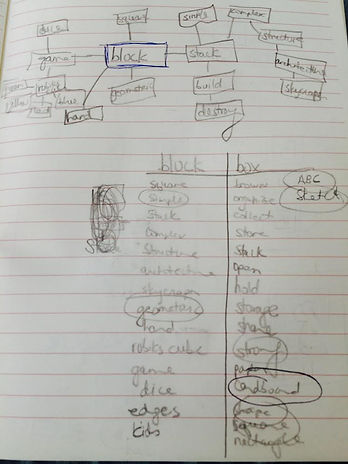 dice
square
simple
complex
game
block
stack
structure
geometric
build
architecture
skyscrap
red
blue
hand
destroy
block box
square brown ABC
simple organise Sketch
stack collect
complex store
structure stack
architecture open
skyscraper hold
geometric storage
hand shape
robiks cube strong
game paper
dice cardboard
edges shape
kids square
rectangle